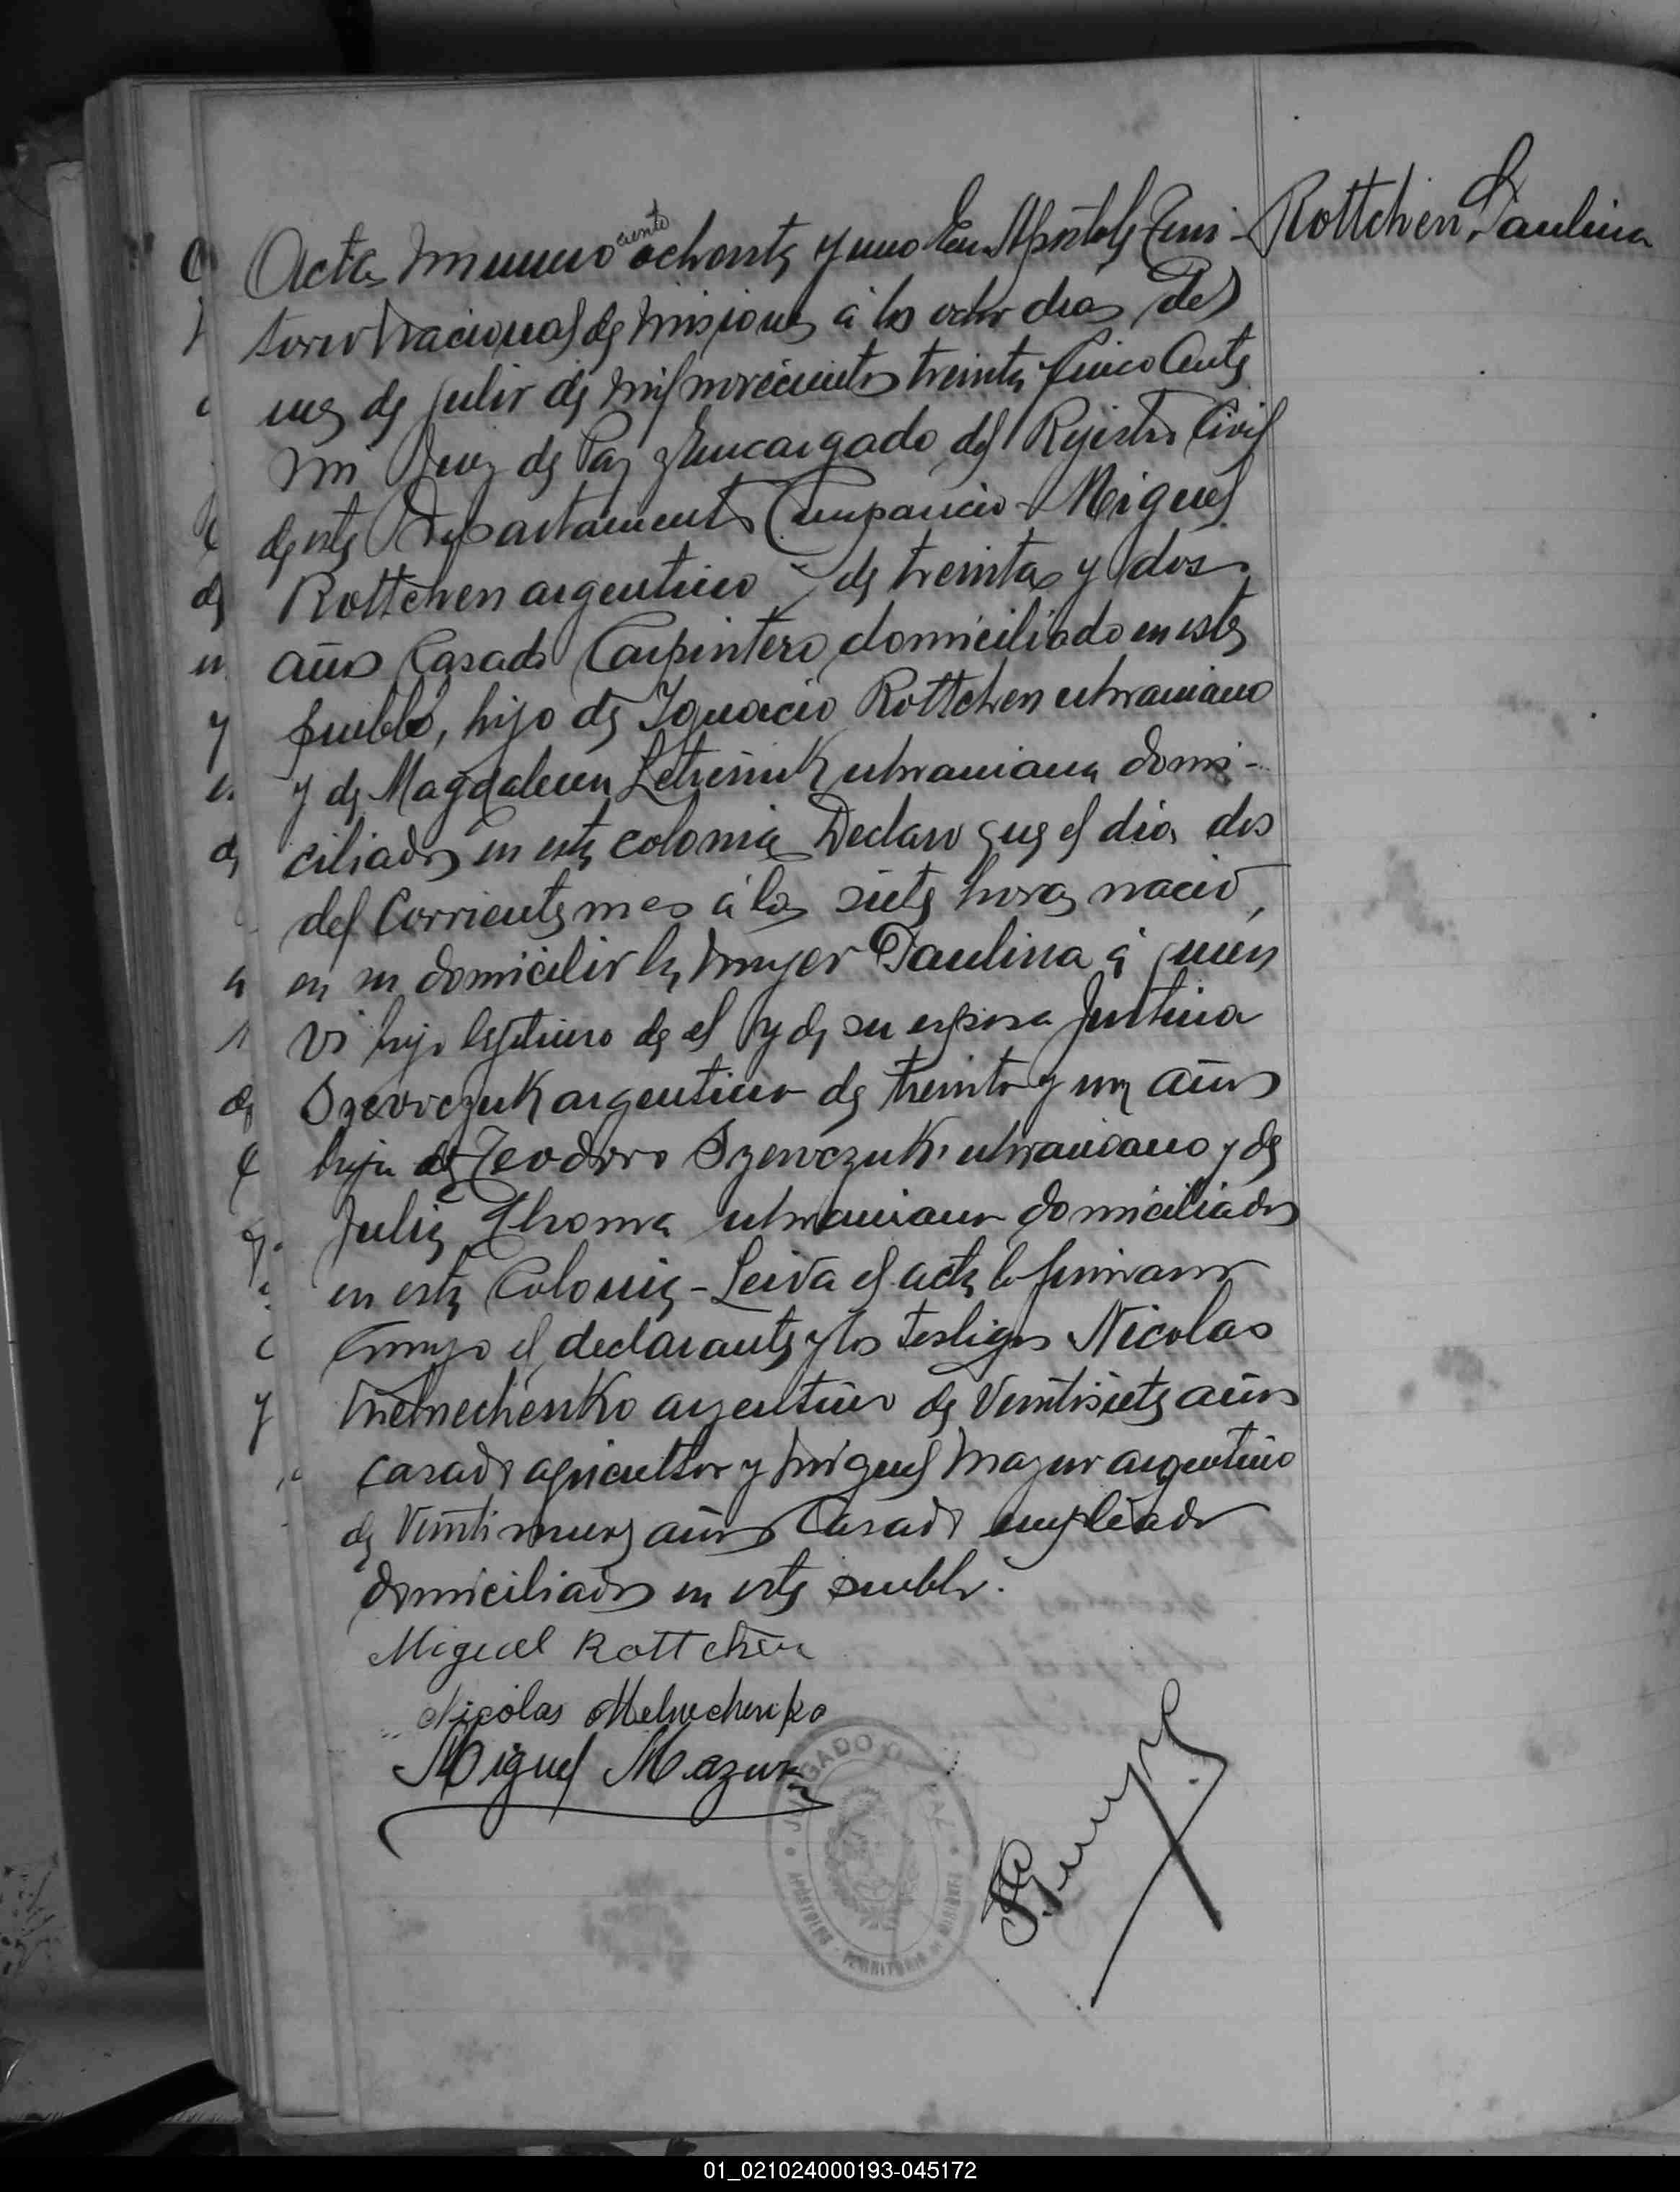 Rottchen, Paulina
Acta numero ciento ochenta y uno En Apóstoles Terri-
torio Nacional de Misiones á los ocho dias del
mes de julio de mil novecientos treinta y cinco Ante
mi Juez de Paz y Encargado del Rejistro Civil
de este Departamento Comparecio Miguel
Rottchen argentino de treinta y dos
años Casado Carpintero domiciliado en este
pueblo, hijo de Ignacio Rottchen ukraniano
y de Magdalena ukraniana domi-
ciliados en esta colonia Declaro que el dia dos
del Corriente mes á las siete horas nació,
en su domicilio la mujer Paulina á quien
vi hija lejitima de el y de su esposa Justina
Szewczuk argentina de treinta y un años
hija de Teodoro Szewczuk ukraniano y de
Julia Thoma ukraniana domiciliados
en esta Colonia - Leida el acta la firmaron
Conmigo el declarante y los testigos Nicolas
Melnechenko argentino de Veintisiete años
casado agricultor y Miguel Mazur argentino
de Veintinueve años Casado empleado
domiciliados en este pueblo.
Miguel Rottchen
Nicolas Melnechenko
Miguel Mazur
JUZGADO DE PAZ
APOSTOLES - TERRITORIO DE MISIONES
01_021024000193-045172